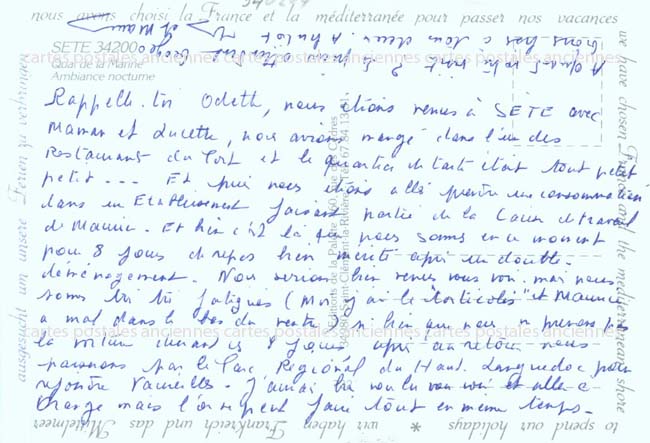 nous avons choisi la France et la méditerranée pour passer nos vacances
we have chosen France and the mediterranean shore
to spend our holidays * wir haben Frankreich und das Mittelmeer
ausgesucht um unsere Ferien zu verbringen
SETE 34200
Quai de la Marine
Ambiance nocturne
cartes postales anciennes cartes postales anciennes cartes postales anciennes
Rappelle-toi Odette, nous étions venus à SETE avec
Maman et Lucette, nous avions mangé dans l'un des
restaurants du Port et le quartier de tarte était tout petit
petit --- Et puis nous étions allé prendre une consommation
dans un Etablissement faisant partie de la Caisse de travail
de Maurice. Et bien c'est là que nous sommes en ce moment
pour 8 jours de repos bien mérité après un double
déménagement. Nous serions bien venus vous voir, mais nous
sommes très très fatigués (Moi j'ai le "torticolis" et Maurice
a mal dans le bas du ventre) si bien que nous ne prenons pas
la voiture durant ces 8 jours après au retour nous
passerons par le Parc Régional du Haut-Languedoc pour
rejoindre Vaureilles. J'aurais bien voulu vous voir et
change mais l'on ne peut faire tout en même temps.
cartes postales anciennes cartes postales anciennes cartes postales anciennes